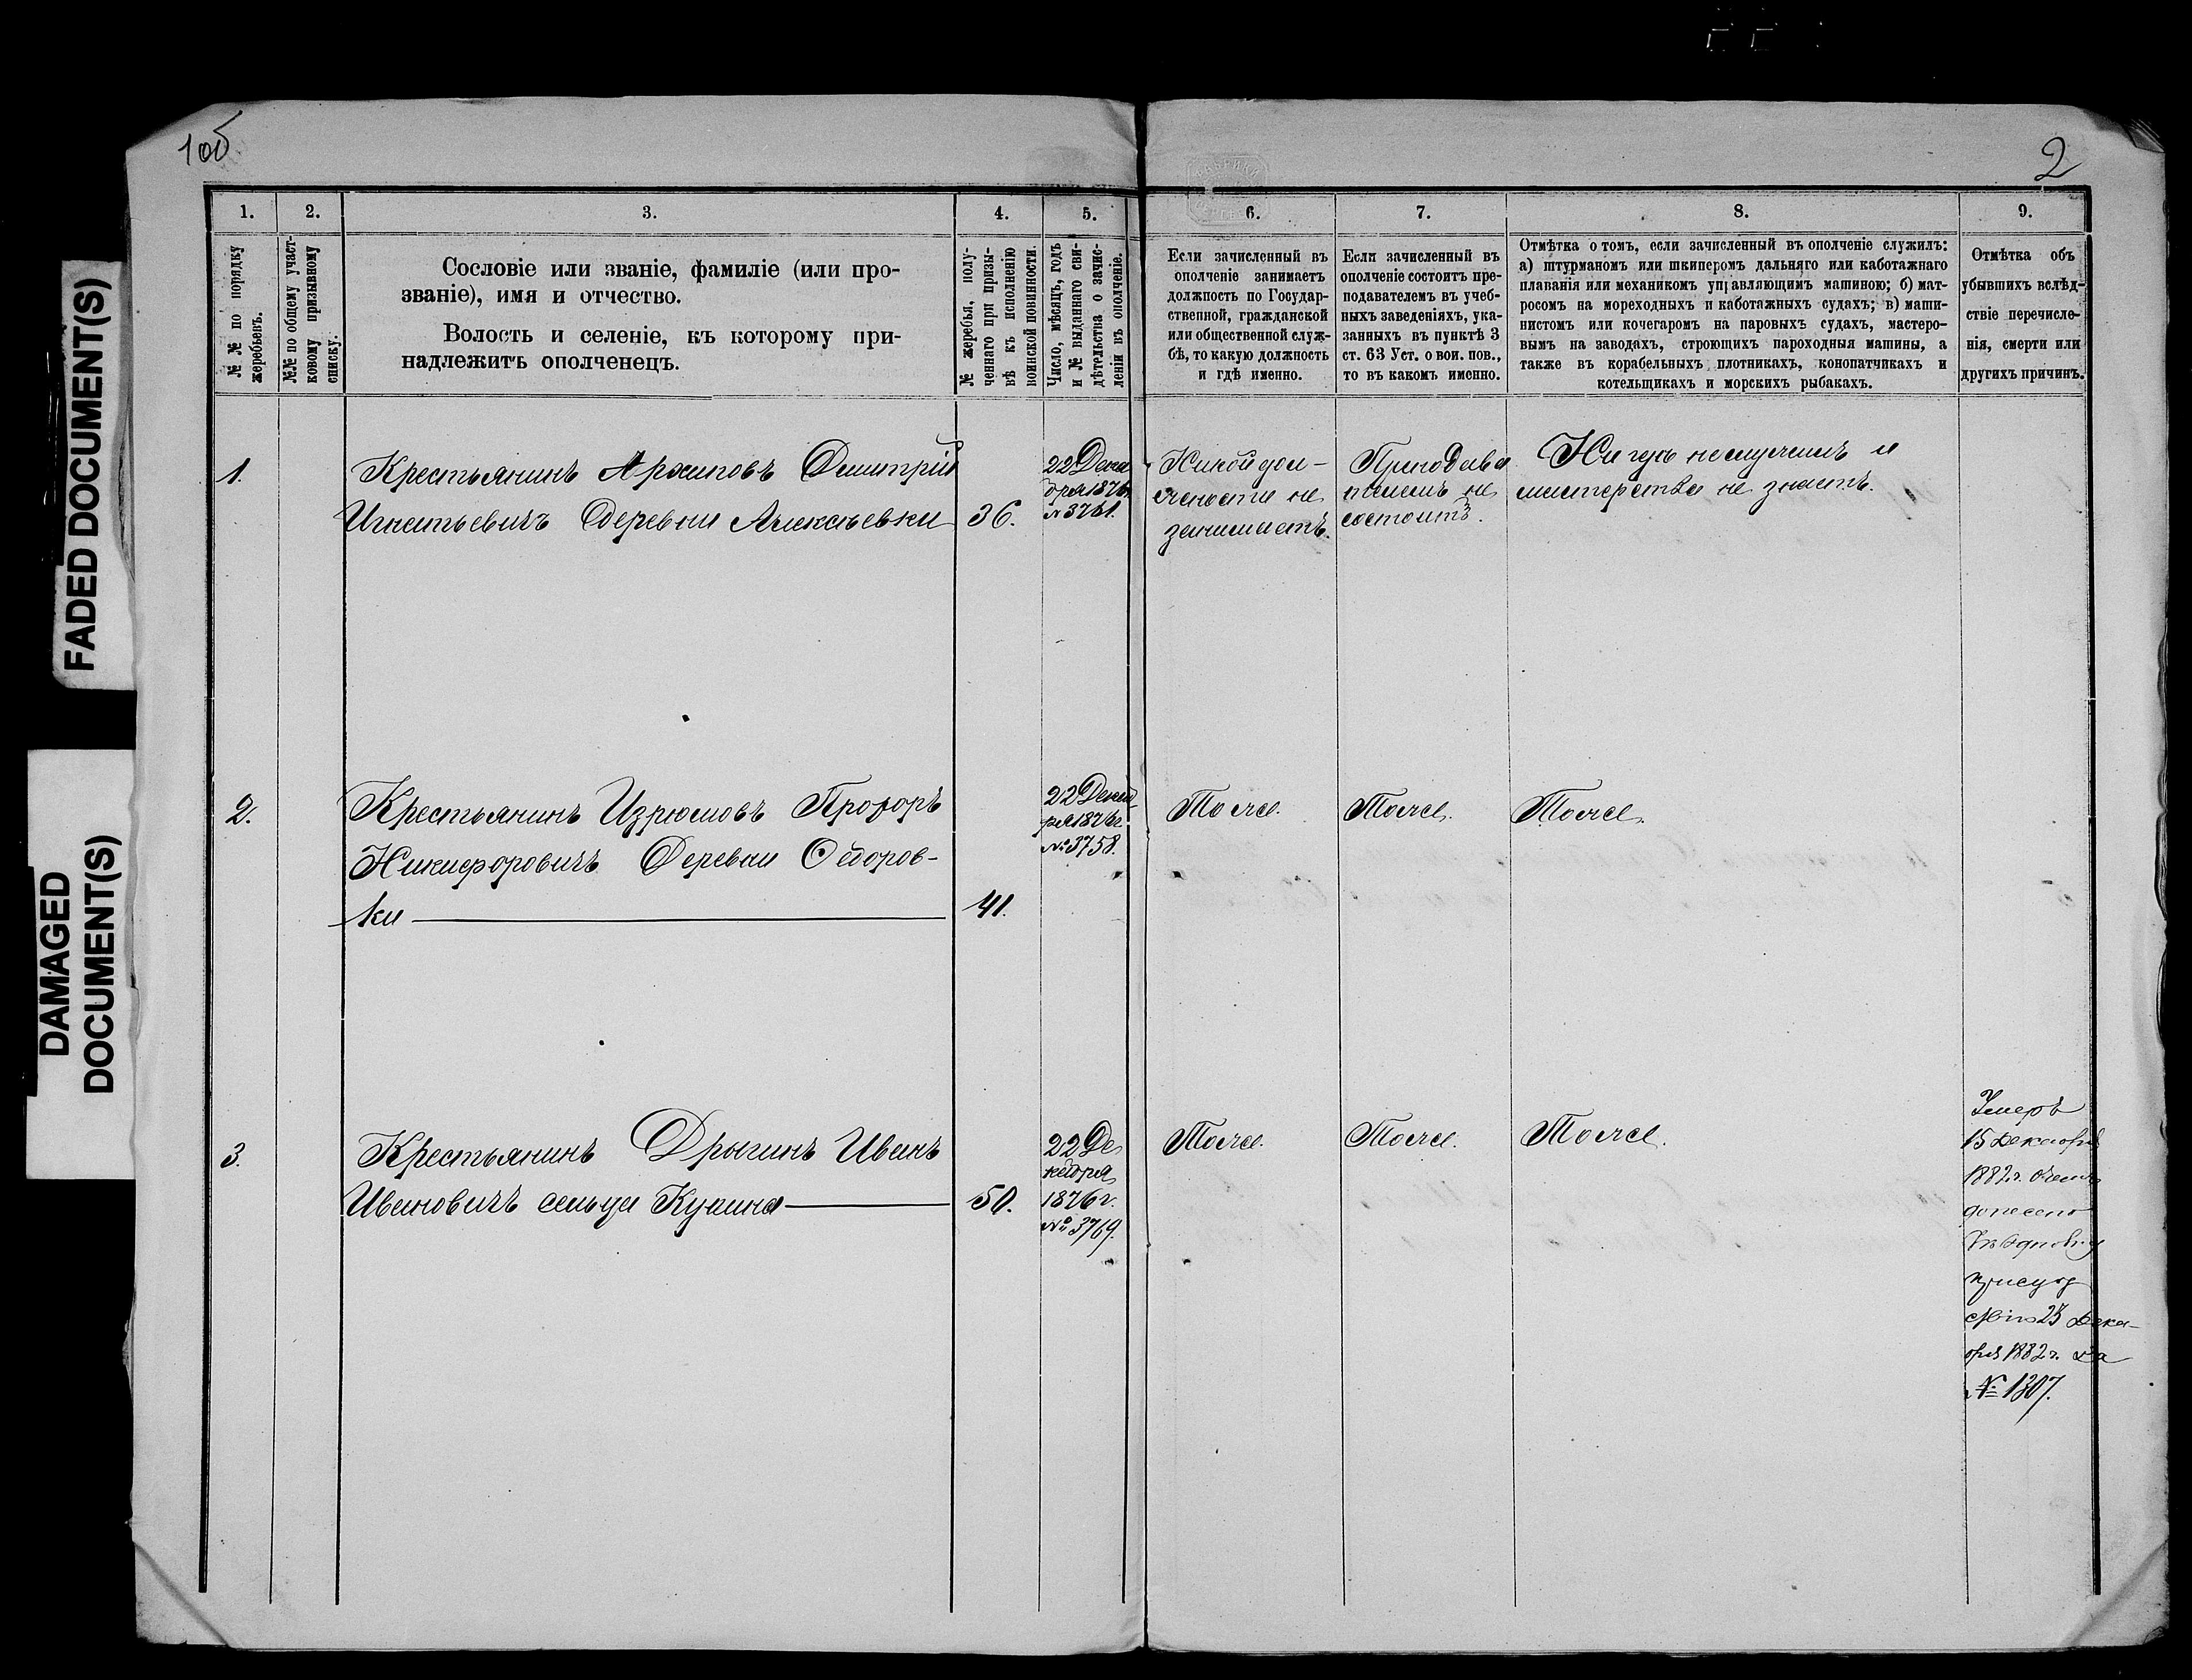 FADED DOCUMENT(S)
DAMAGED
DOCUMENT(S)
1об
2
1.
2.
3.
4.
5.
6.
7.
8.
9.
№ № по порядку
жеребьевъ.
№№ по общему участ-
ковому призывному
списку.
Сословіе или званіе, фамиліе (или про-
званіе), имя и отчество.
Волость и селеніе, къ которому при-
надлежитъ ополченецъ.
№ жеребья, полу-
ченнаго при призы-
вѣ къ исполненію
воинской повинности.
Число, мѣсяцъ, годъ
и № выданнаго сви-
дѣтельства о зачис-
леніи въ ополченіе.
Если зачисленный въ
ополченіе занимаетъ
должность по Государ-
ственной, гражданской
или общественной служ-
бѣ, то какую должность
и гдѣ именно.
Если зачисленный въ
ополченіе состоитъ пре-
подавателемъ въ учеб-
ныхъ заведеніяхъ, ука-
занныхъ въ пунктѣ 3
ст. 63 Уст. о вои. пов.,
то въ какомъ именно.
Отмѣтка о томъ, если зачисленный въ ополченіе служилъ:
а) штурманомъ или шкиперомъ дальняго или каботажнаго
плаванія или механикомъ управляющимъ машиною; б) мат-
росомъ на мореходныхъ и каботажныхъ судахъ; в) маши-
нистомъ или кочегаромъ на паровыхъ судахъ, мастеро-
вымъ на заводахъ, строющихъ пароходныя машины, а
также въ корабельныхъ плотникахъ, конопатчикахъ и
котельщикахъ и морскихъ рыбакахъ.
Отмѣтка объ
убывшихъ вслѣд-
ствіе перечисле-
нія, смерти или
другихъ причинъ.
1.
Крестьянинъ Архиповъ Дмитрій
Игнатьевичъ Деревни Алексѣевки
36.
22 Дека
бря 1876
Никой дол-
жности не
занимаетъ.
Преподава
телемъ не
состоитъ.
и
мастерства не знаетъ.
2.
Крестьянинъ Изрюмовъ Прохоръ
Никифоровичъ Деревни Ѳедоров-
ки
41.
22 Декаб
ря 1876г
№ 3758.
Тоже.
Тоже.
Тоже.
3.
Крестьянинъ Дрыгинъ Иванъ
Ивановичъ сельца Купина
50.
22 Де
кабря
1876 г.
№ 3769.
Тоже.
Тоже.
Тоже.
Умеръ
15 Декабря
1882 г. о чемъ
донесено
присут
ствію 23 Дека-
бря 1882 г. за
№ 1307.